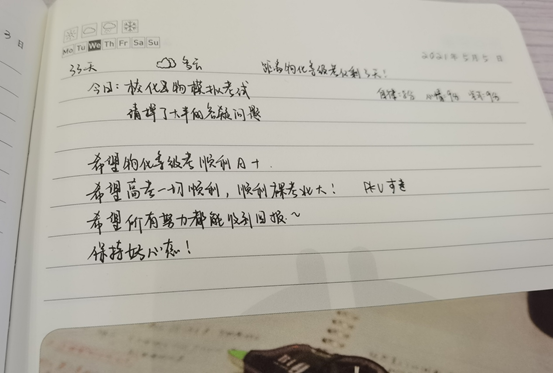 3日
Mo Tu We Th Fr Sa Su
33天 多云 2021年5月5日
距离物化等级考仅剩3天!
今日: 核化生物模拟考试
请讲了大半的答疑问题
希望物化等级考顺利A+.
希望高考一切顺利, 顺利裸考北大! PKU
希望所有努力都能收到回报~
保持好心态!